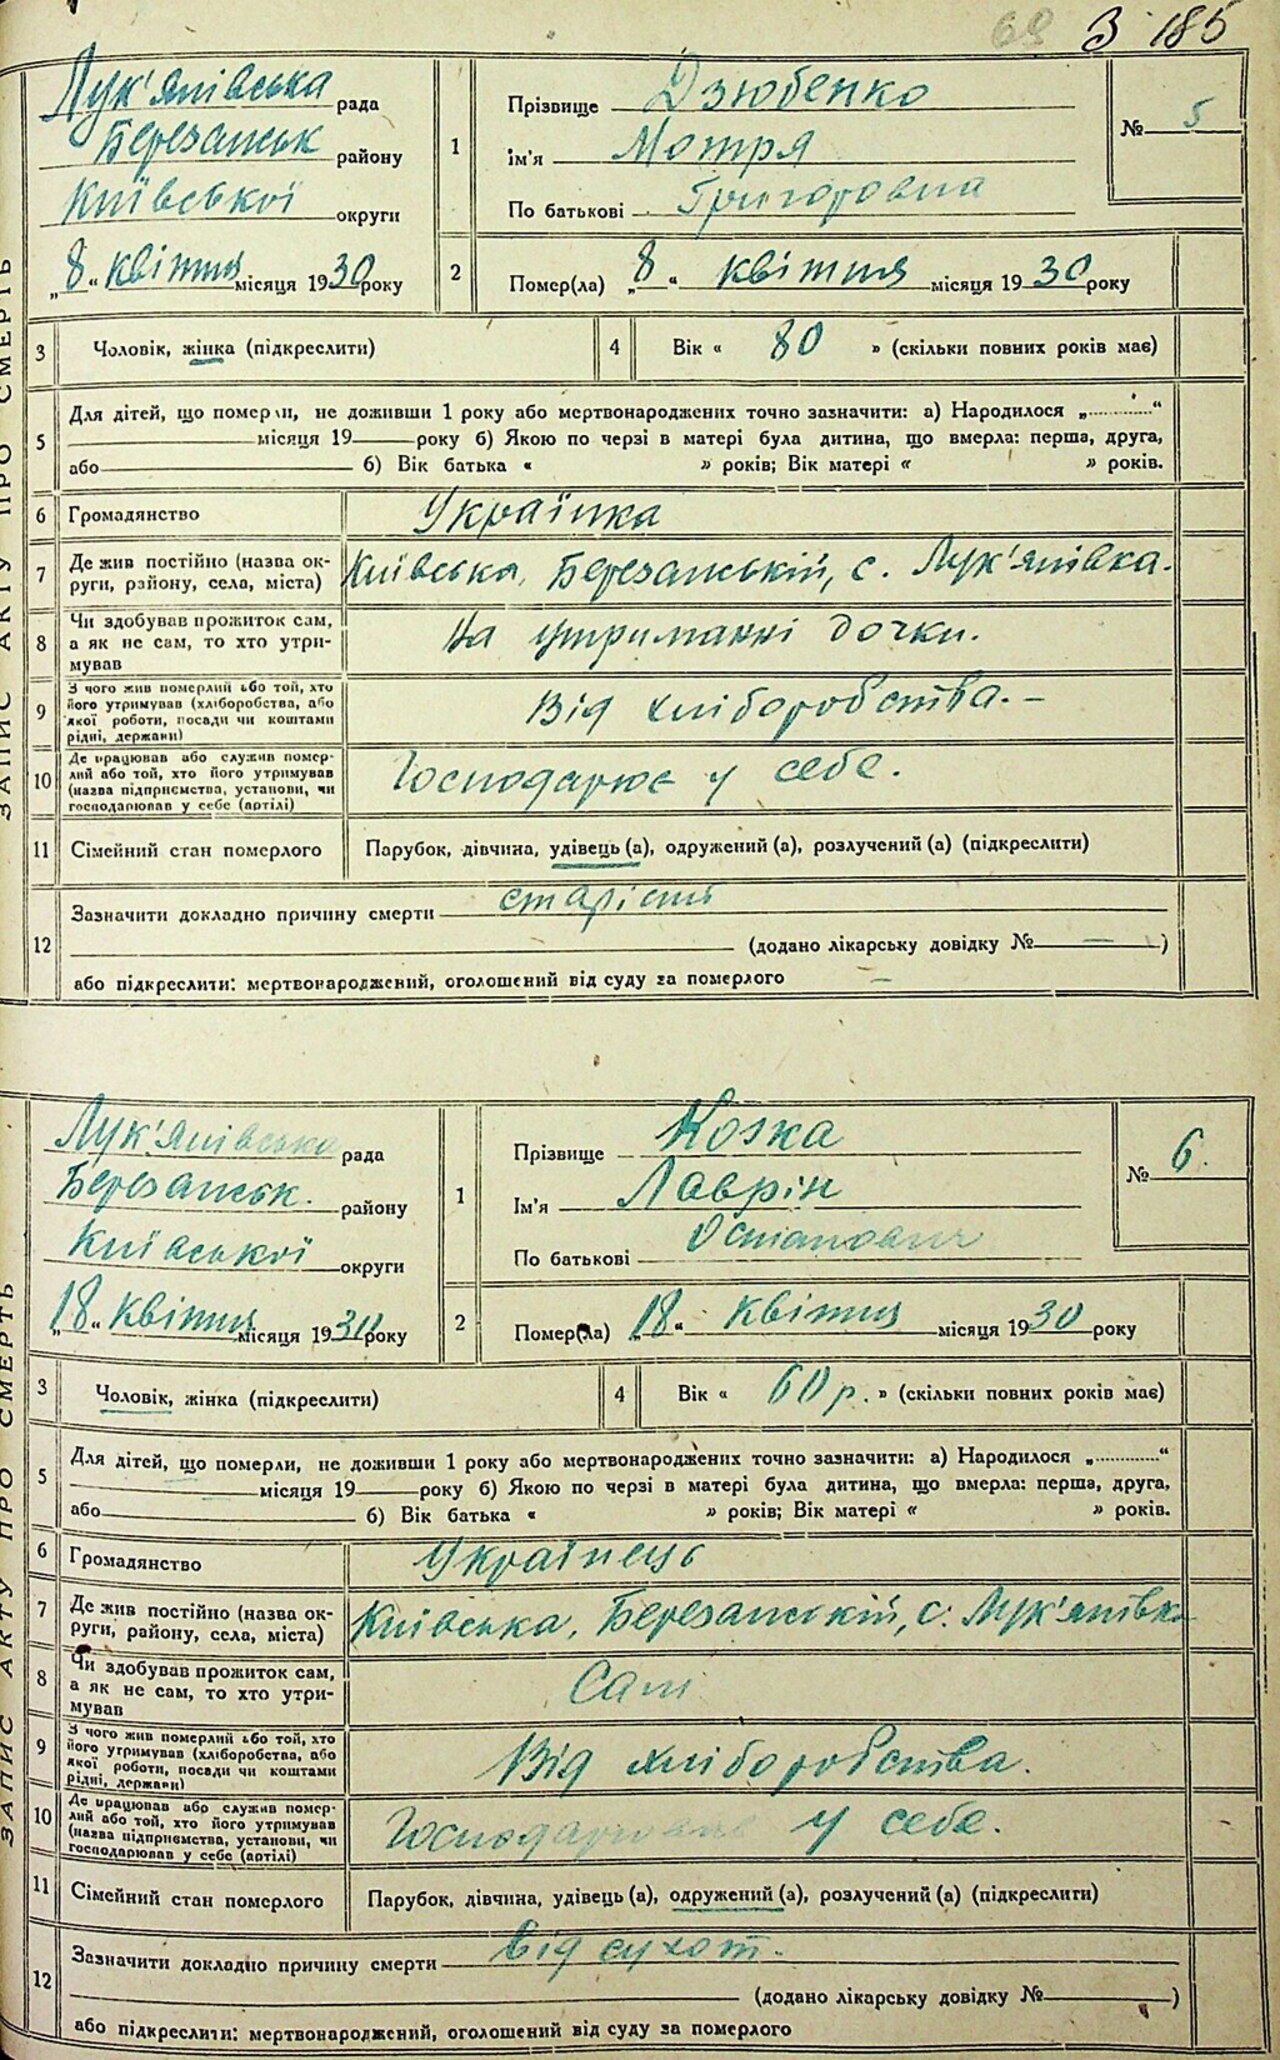 69 3 185
ЗАПИС АКТУ ПРО СМЕРТЬ
Лук'янівська рада
Березанськ району
Київської округи
„8“ квітня місяця 1930 року
1
Прізвище Дзюбенко
Ім'я Мотря
По батькові Григоровна
№ 5
2
Помер(ла) „8“ квітня місяця 1930 року
3 Чоловік, жінка (підкреслити)
4 Вік « 80 » (скільки повних років має)
5 Для дітей, що померли, не доживши 1 року або мертвонароджених точно зазначити: а) Народилося „ “
місяця 19 року б) Якою по черзі в матері була дитина, що вмерла: перша, друга,
або б) Вік батька « » років; Вік матері « » років.
6 Громадянство Українка
7 Де жив постійно (назва ок-
руги, району, села, міста) Київська, Березанській, с. Лук'янівка.
8 Чи здобував прожиток сам,
а як не сам, то хто утри-
мував На утриманні дочки.
9 З чого жив померлий або той, хто
його утримував (хліборобства, або
якої роботи, посади чи коштами
рідні, держави) Від хліборобства. –
10 Де працював або служив помер-
лий або той, хто його утримував
(назва підприємства, установи, чи
господарював у себе (артілі) Господарює у себе.
11 Сімейний стан померлого Парубок, дівчина, удівець (а), одружений (а), розлучений (а) (підкреслити)
12 Зазначити докладно причину смерти старість
(додано лікарську довідку № — )
або підкреслити: мертвонароджений, оголошений від суду за померлого –
ЗАПИС АКТУ ПРО СМЕРТЬ
Лук'янівська рада
Березанськ. району
Київської округи
„18“ квітня місяця 1930 року
1
Прізвище Козка
Ім'я Лаврін
По батькові Остапович
№ 6.
2
Помер(ла) „18“ квітня місяця 1930 року
3 Чоловік, жінка (підкреслити)
4 Вік « 60 р. » (скільки повних років має)
5 Для дітей, що померли, не доживши 1 року або мертвонароджених точно зазначити: а) Народилося „ “
місяця 19 року б) Якою по черзі в матері була дитина, що вмерла: перша, друга,
або б) Вік батька « » років; Вік матері « » років.
6 Громадянство Українець
7 Де жив постійно (назва ок-
руги, району, села, міста) Київська, Березанській, с. Лук'янівка
8 Чи здобував прожиток сам,
а як не сам, то хто утри-
мував Сам
9 З чого жив померлий або той, хто
його утримував (хліборобства, або
якої роботи, посади чи коштами
рідні, держави) Від хліборобства.
10 Де працював або служив помер-
лий або той, хто його утримував
(назва підприємства, установи, чи
господарював у себе (артілі) Господарював у себе.
11 Сімейний стан померлого Парубок, дівчина, удівець (а), одружений (а), розлучений (а) (підкреслити)
12 Зазначити докладно причину смерти від сухот.
(додано лікарську довідку № )
або підкреслити: мертвонароджений, оголошений від суду за померлого